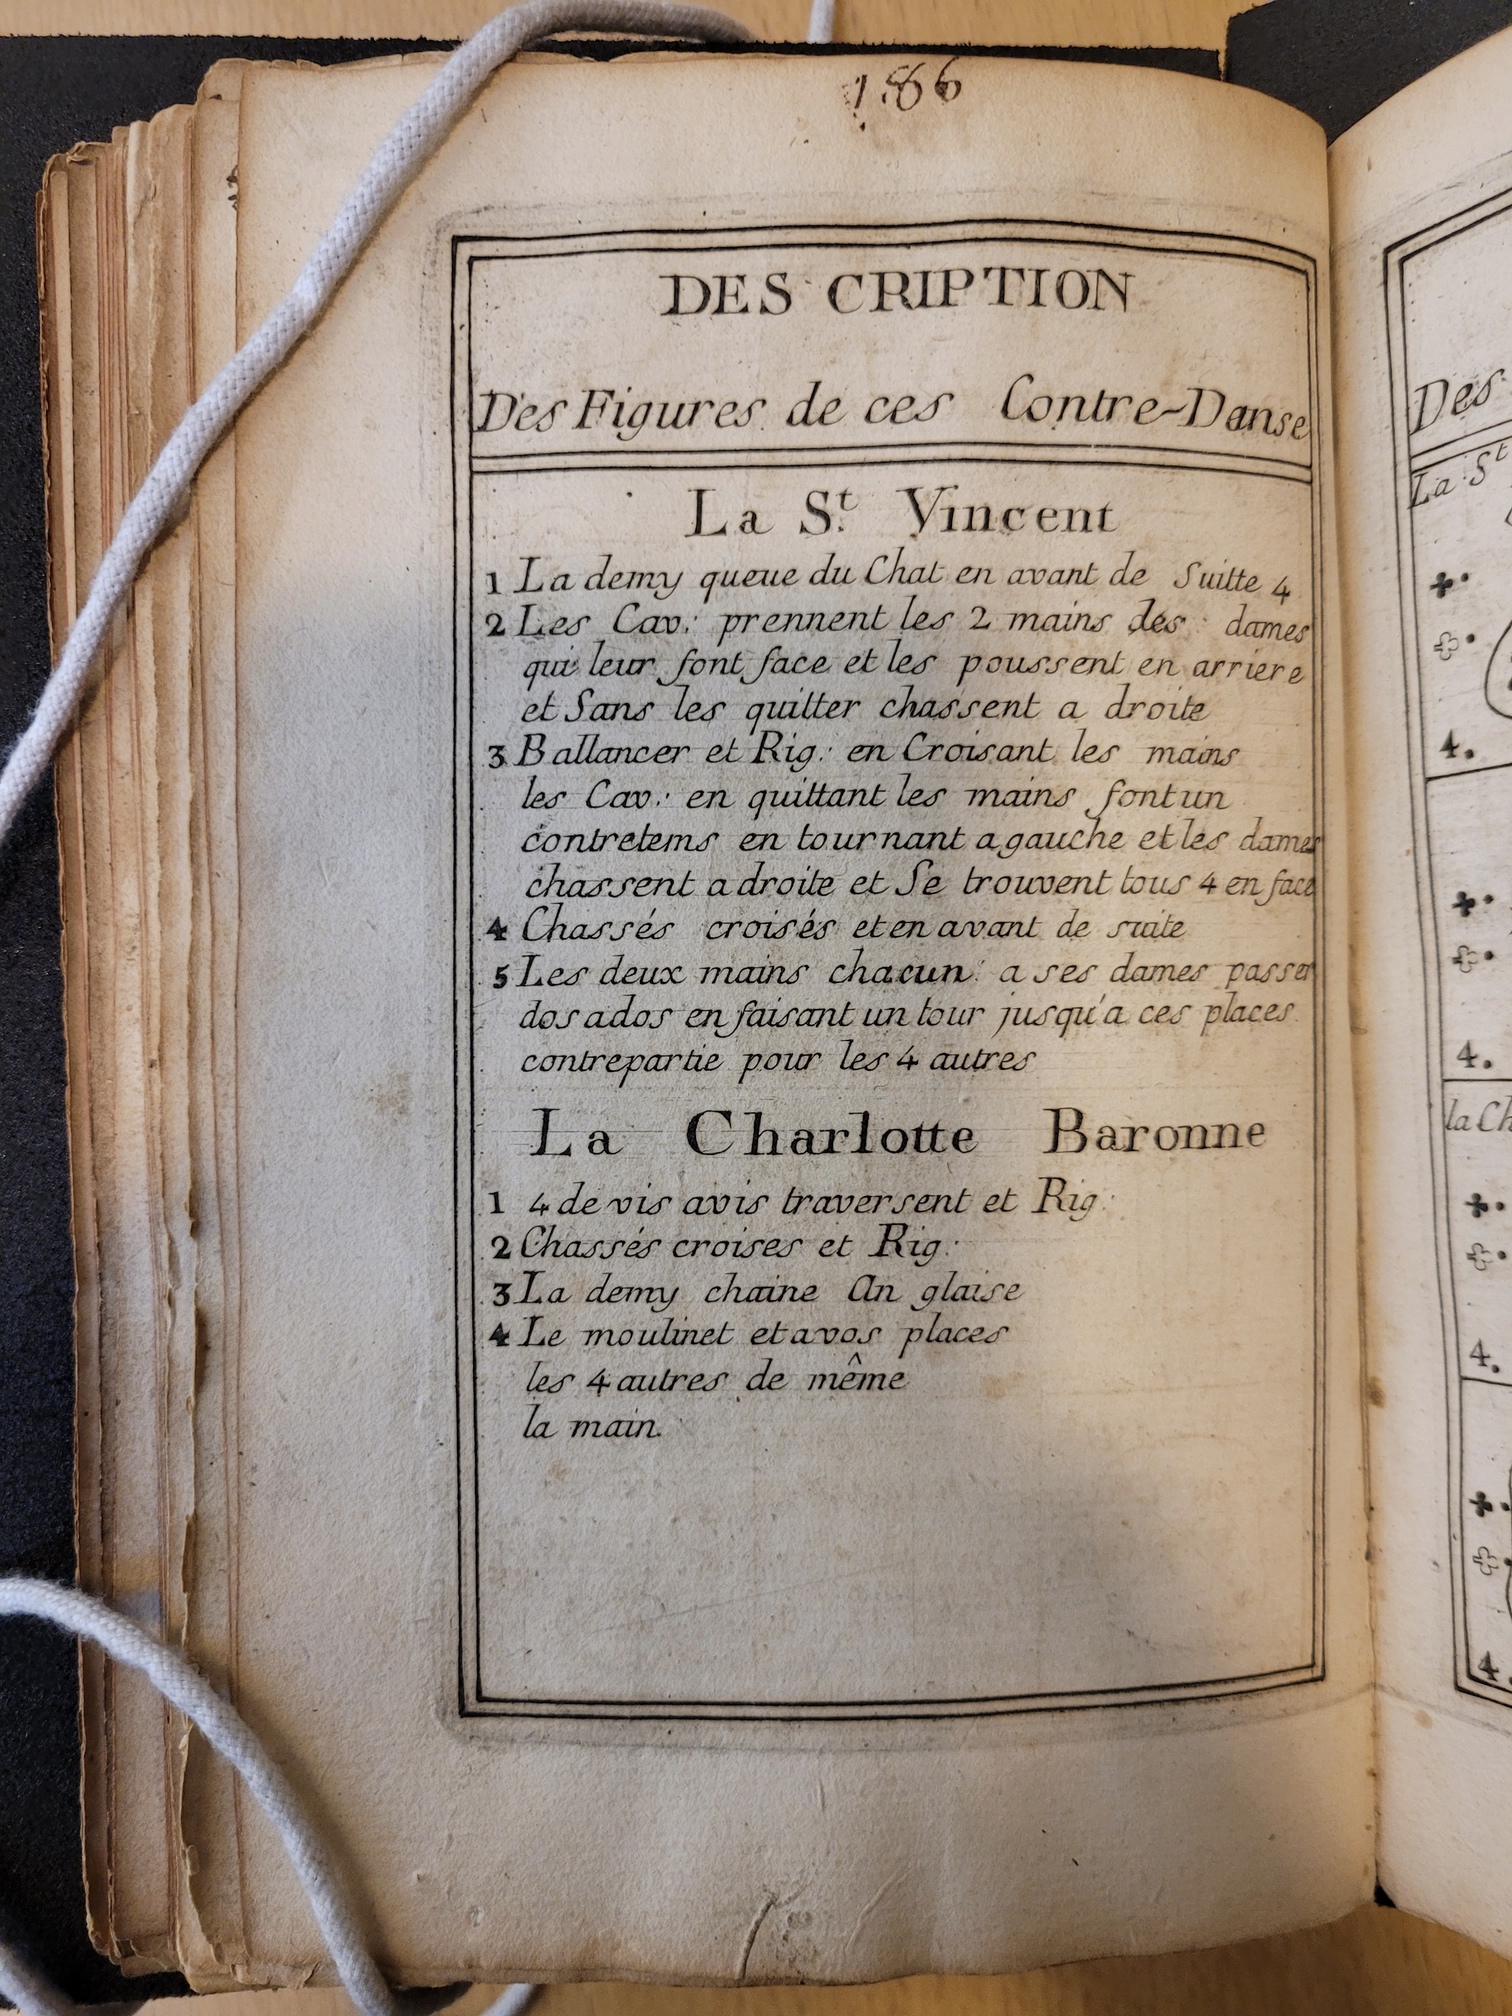 186
DES CRIPTION
Des Figures de ces Contre-Danse
La S.t Vincent
1 La demy queue du Chat en avant de Suitte 4
2 Les Cav: prennent les 2 mains des dames
qui leur font face et les poussent en arriere
et Sans les quitter chassent a droite
3 Ballancer et Rig: en Croisant les mains
les Cav: en quittant les mains font un
contretems en tournant a gauche et les dames
chassent a droite et Se trouvent tous 4 en face
4 Chassés croisés et en avant de suite
5 Les deux mains chacun a ses dames passer
dos ados en faisant un tour jusqu'a ces places
contrepartie pour les 4 autres
La Charlotte Baronne
1 4 de vis avis traversent et Rig:
2 Chassés croises et Rig:
3 La demy chaine An glaise
4 Le moulinet et a vos places
les 4 autres de même
la main.
Des
La St
4.
4.
la Ch
4.
4.